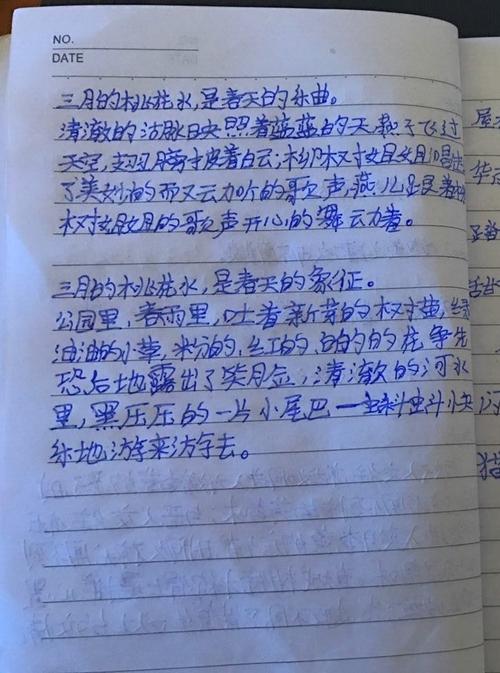 NO.
DATE
三月的桃花水,是春天的乐曲。
清澈的河脉映照着蓝蓝的天,燕子飞过
天空,翅膀披着白云;柳树姐姐唱出
了美妙的而又动听的歌声,燕儿
树姐姐的歌声开心的舞动着。
三月的桃花水,是春天的象征。
公园里,春雨里,吐着新芽的树苗,绿
油油的小草,粉的、红的、白的的花争先
恐后地露出了笑脸,清澈的河水
里,黑压压的一片小尾巴——蝌蚪快
乐地游来游去。
屋
华